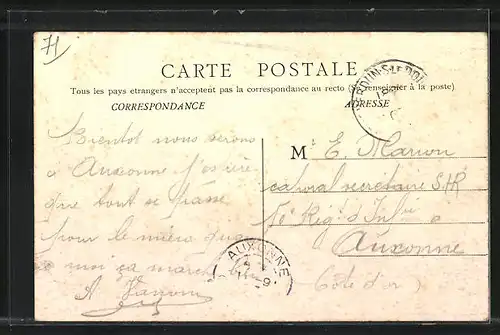 71
CARTE POSTALE
Tous les pays etrangers n'acceptent pas la correspondance au recto (Se renseigner à la poste)
CORRESPONDANCE
ADRESSE
Bientot nous serons
à Auxonne j'espère
que tout se passe
pour le mieux
moi ça marche
A
M E. Marion
caporal secrétaire
Rigt d'Infie
Auxonne
Côte d'or
VERDUN-S-LE-DOUBS
AUXONNE